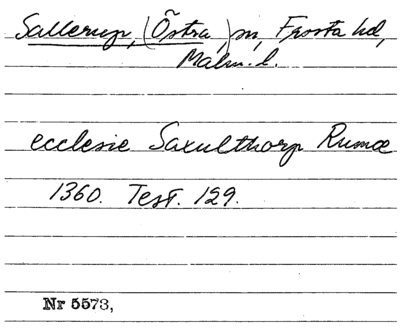 Sallerup, (Östra,) sn, Frosta hd,
Malm. l.
ecclesie Saxulthorp Rumæ
1360. Test. 129.
Nr 5573,